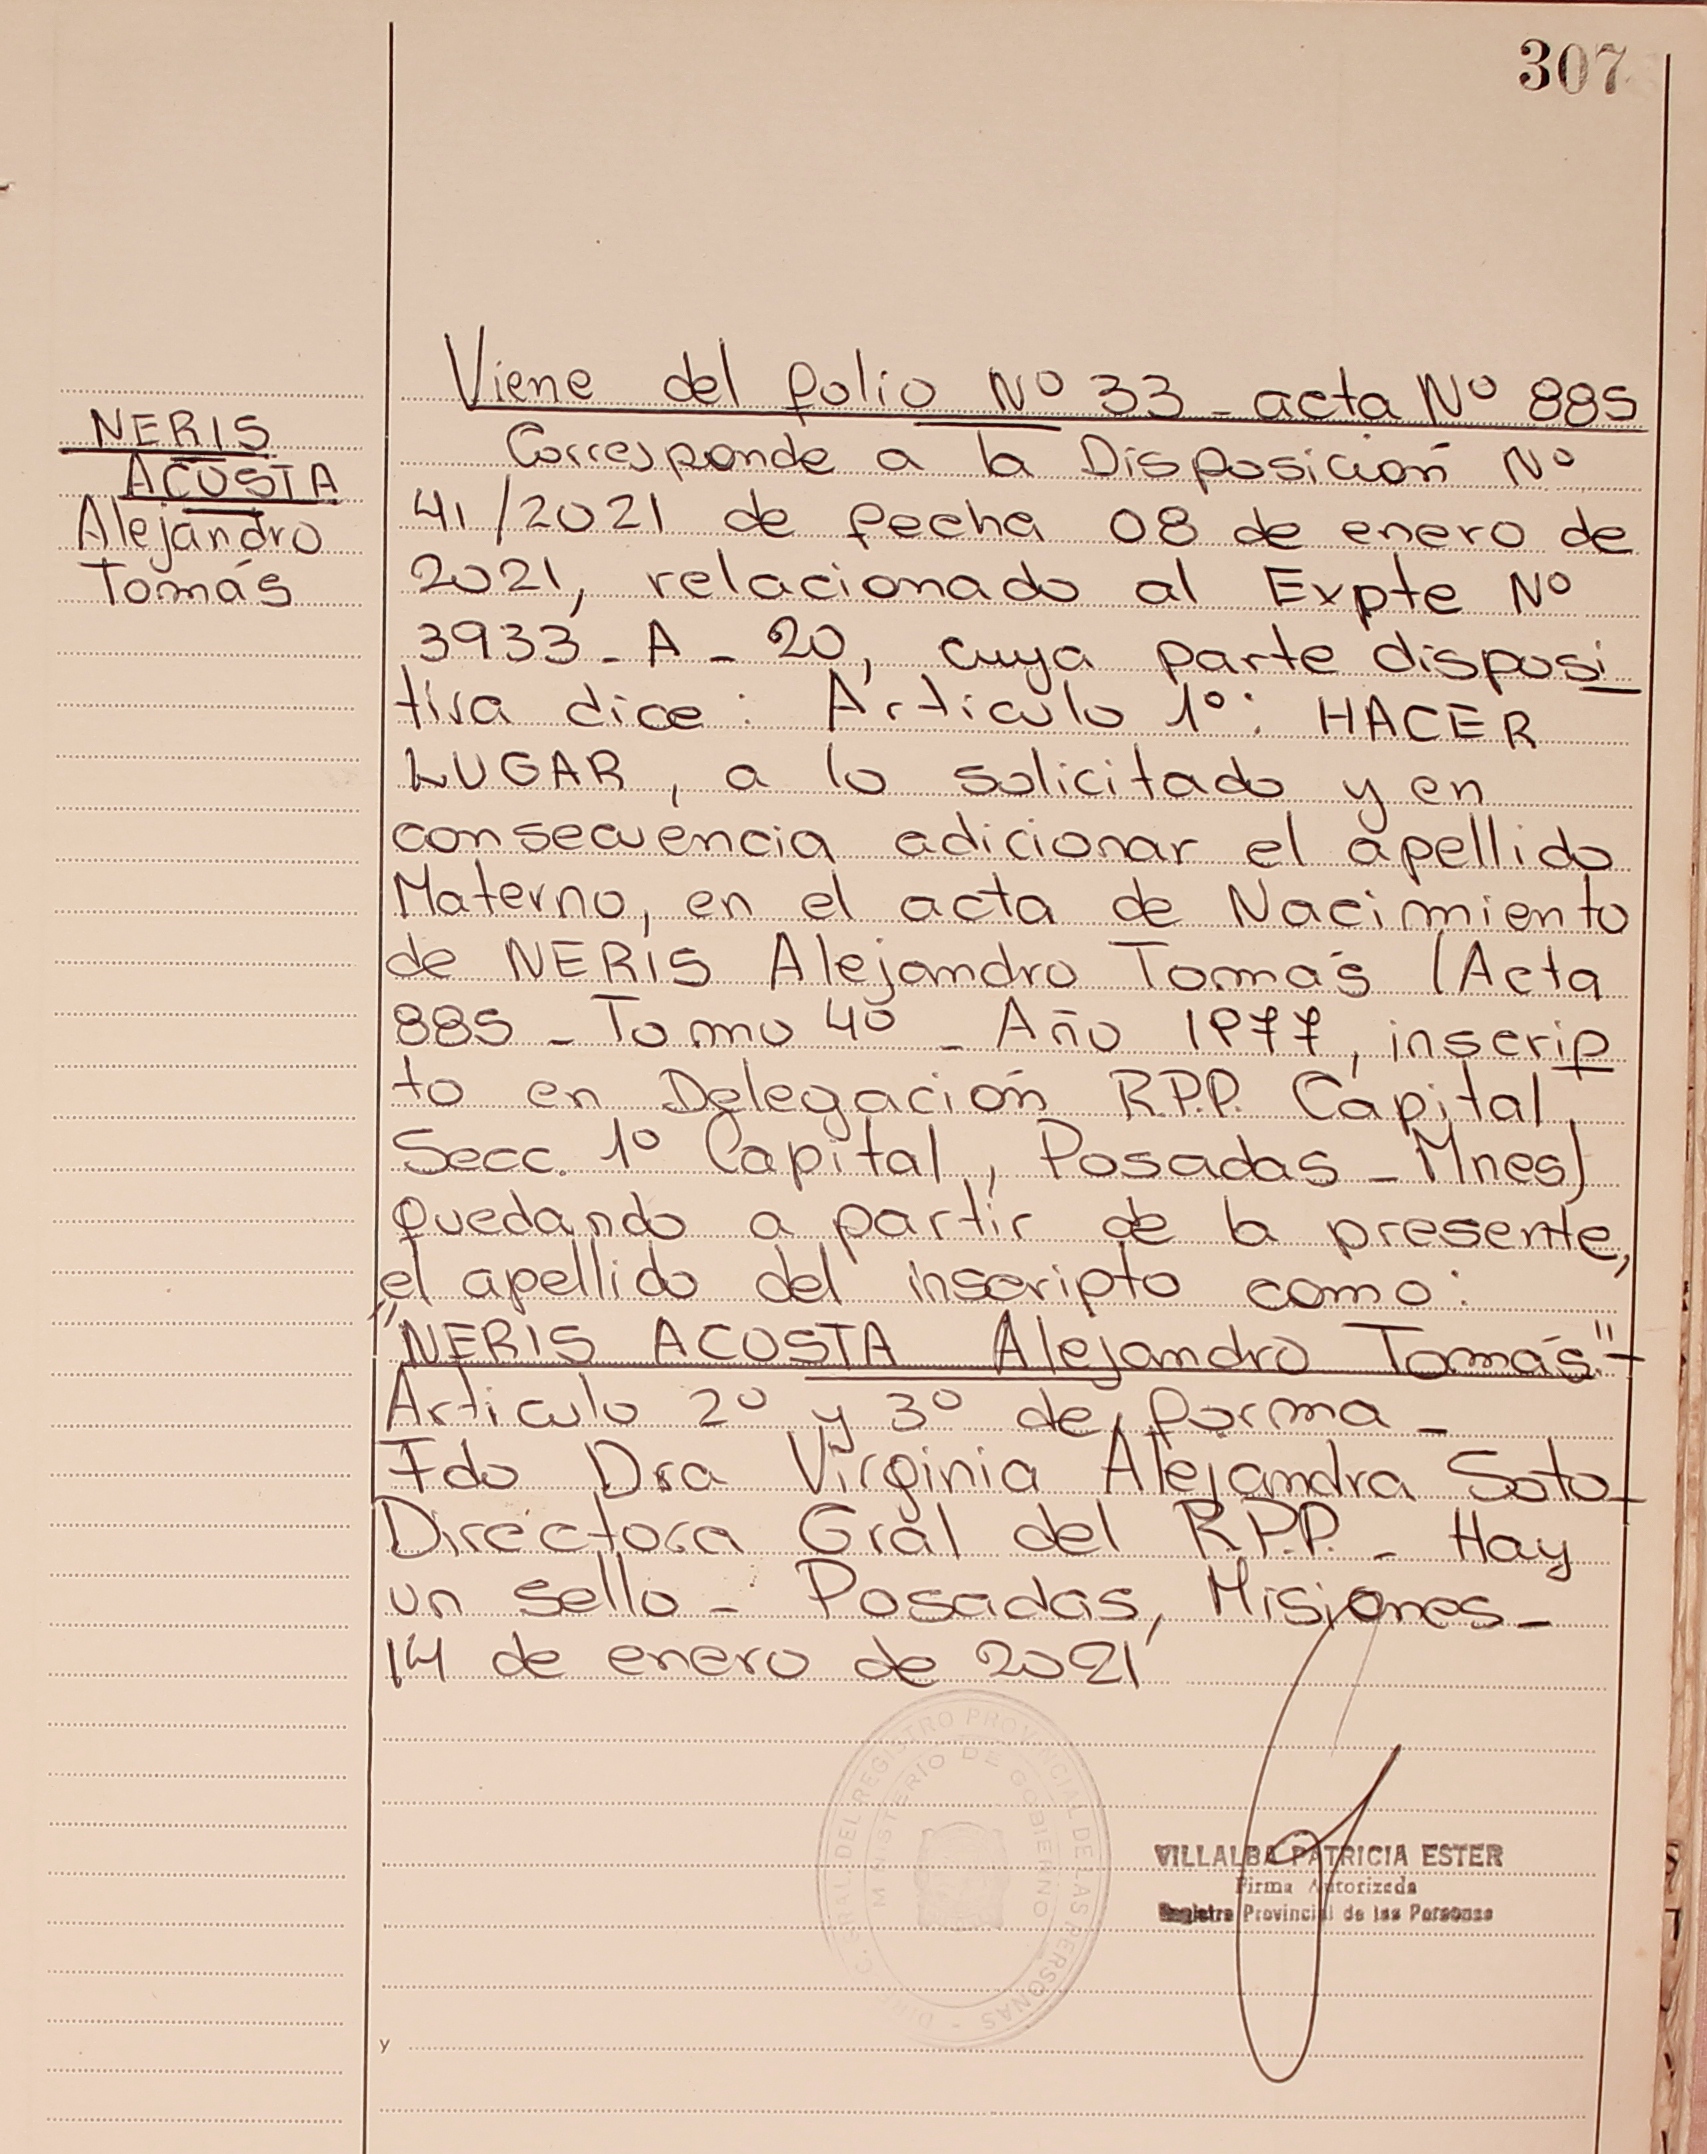 307
NERIS
ACOSTA
Alejandro
Tomás
Viene del folio Nº 33 - acta Nº 885
Corresponde a la Disposición Nº
41/2021 de fecha 08 de enero de
2021, relacionado al Expte Nº
3933 - A - 20, cuya parte disposi
tiva dice: Artículo 1º: HACER
LUGAR, a lo solicitado y en
consecuencia adicionar el apellido
Materno, en el acta de Nacimiento
de NERIS Alejandro Tomás (Acta
885 - Tomo 4º - Año 1977, inscrip
to en Delegación R.P.P. Capital
Secc. 1º Capital, Posadas - Mnes)
quedando a partir de la presente,
el apellido del inscripto como:
"NERIS ACOSTA Alejandro Tomás."-
Artículo 2º y 3º de forma -
Fdo Dra Virginia Alejandra Soto -
Directora Gral del R.P.P. - Hay
un sello - Posadas, Misiones -
14 de enero de 2021
GRAL. DEL REGISTRO PROVINCIAL DE LAS PERSONAS -
MINISTERIO DE GOBIERNO
VILLALBA PATRICIA ESTER
Firma Autorizada
Registro Provincial de las Personas
y